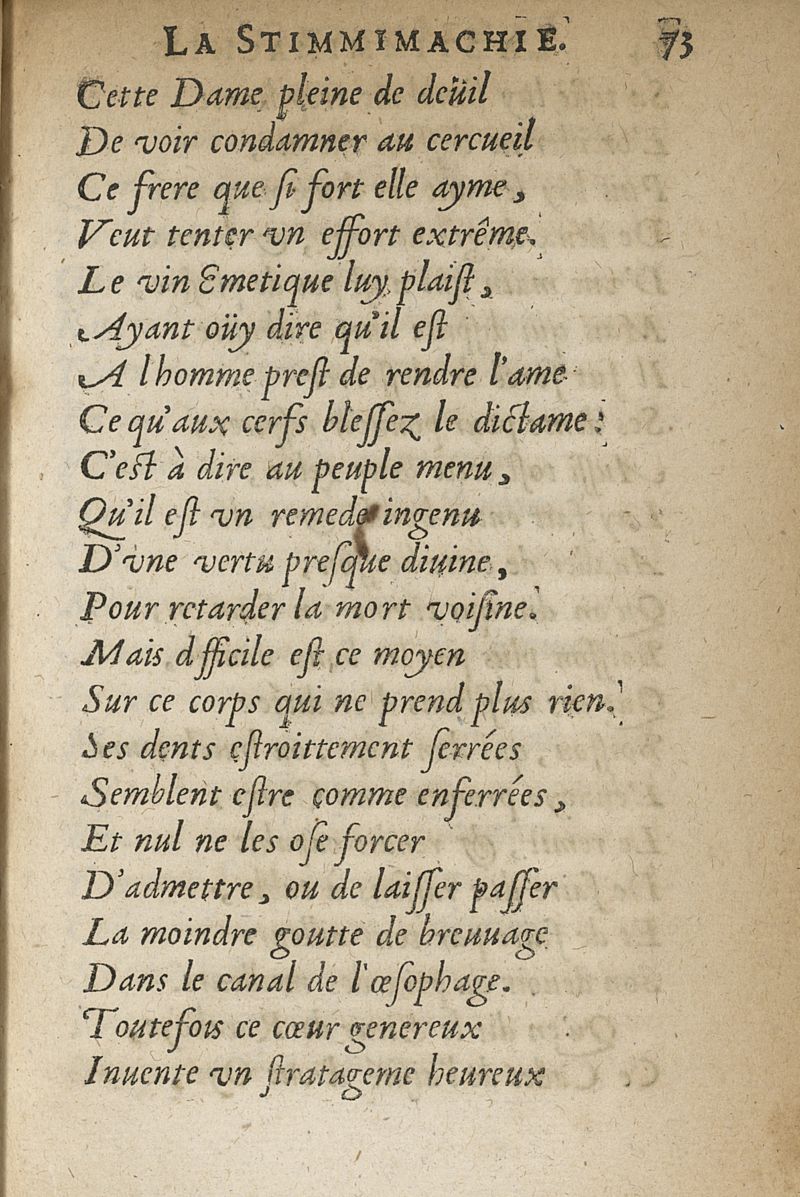 LA STIMMIMACHIE. 73
Cette Dame pleine de deüil
De voir condamner au cercueil
Ce frere que ſi fort elle ayme,
Veut tenter vn effort extrême.
Le vin Emetique luy plaiſt,
Ayant oüy dire qu'il eſt
A lhomme preſt de rendre l'ame
Ce qu'aux cerfs bleſſez le dictame:
C'eſt à dire au peuple menu,
Qu'il eſt vn remede ingenu
D'vne vertu preſque diuine,
Pour retarder la mort voiſine.
Mais dfficile eſt ce moyen
Sur ce corps qui ne prend plus rien.
Ses dents eſtroittement ſerrées
Semblent eſtre comme enferrées,
Et nul ne les oſe forcer
D'admettre, ou de laiſſer paſſer
La moindre goutte de breuuage
Dans le canal de l'œſophage.
Toutefois ce cœur genereux
Inuente vn ſtratageme heureux